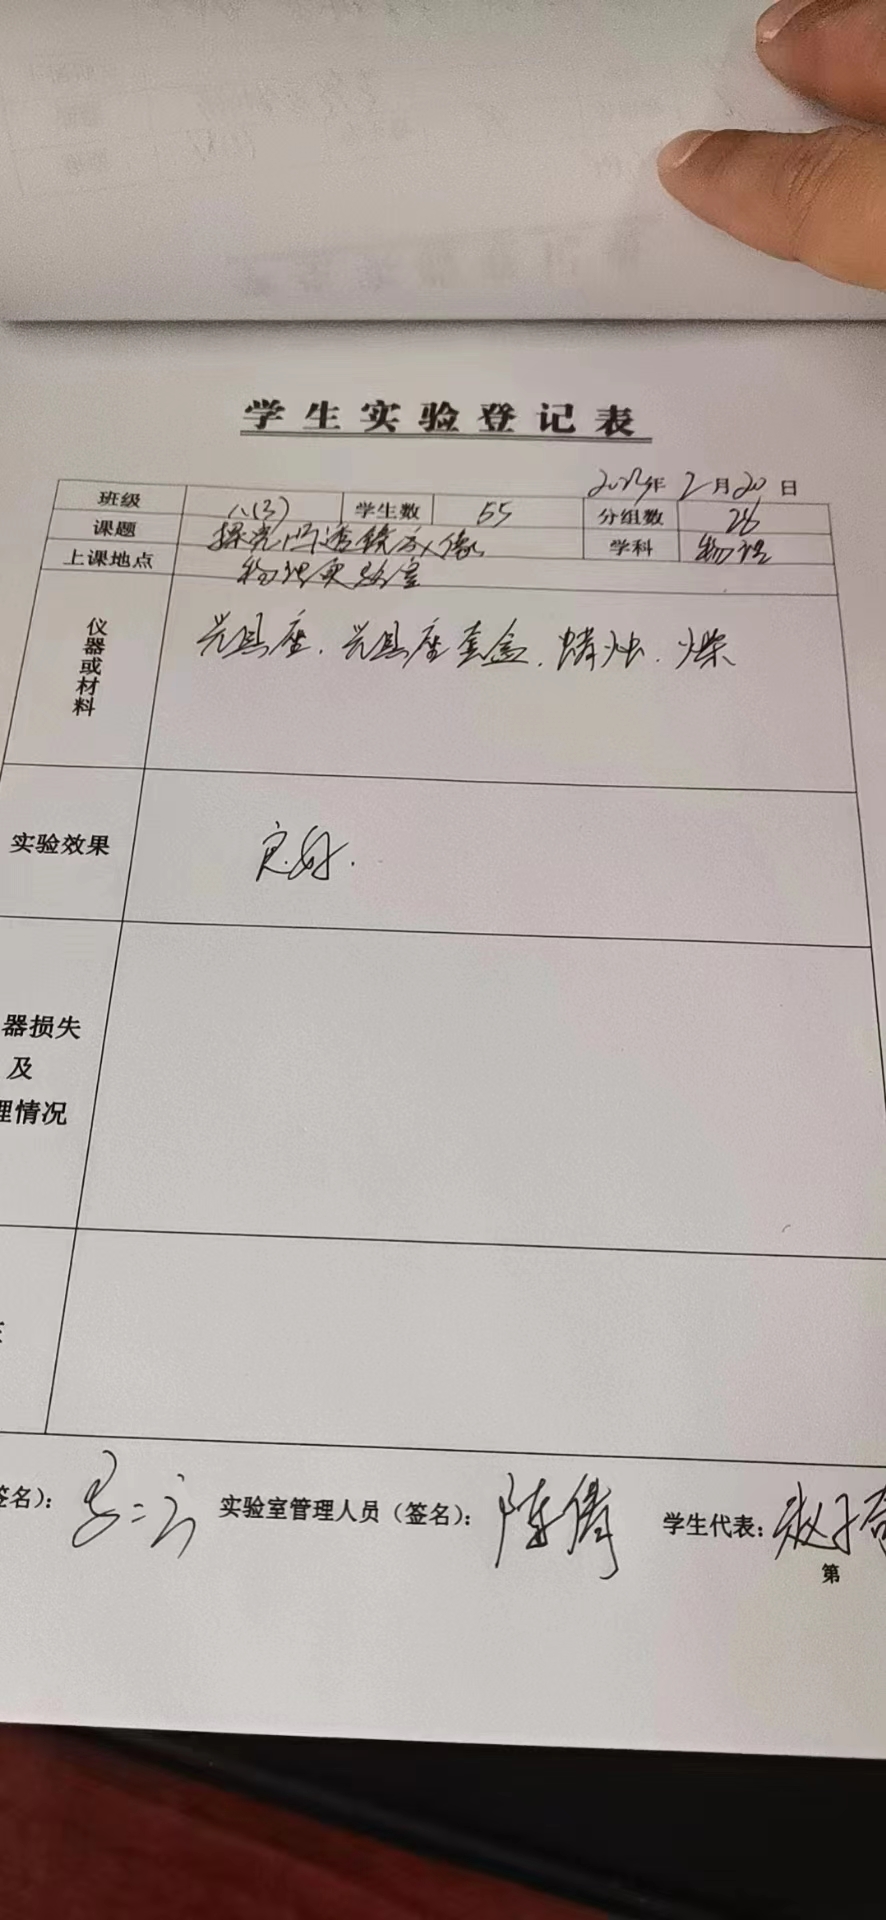 学生实验登记表
年 2月20日
班级 八(3) 学生数 55 分组数 28
课题 探究凸透镜成像 学科 物理
上课地点 物理实验室
仪器或材料 光具座、光具座套盒、蜡烛、火柴
实验效果 良好.
器损失
及
理情况
签名): 实验室管理人员(签名): 陈倩 学生代表: 赵子
第